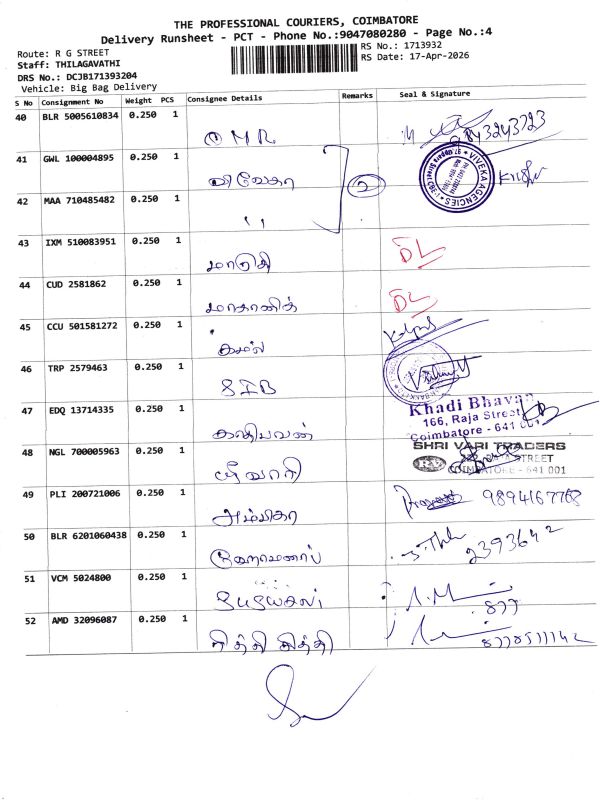 THE PROFESSIONAL COURIERS, COIMBATORE
Delivery Runsheet - PCT - Phone No.:9047080280 - Page No.:4
Route: R G STREET
RS No.: 1713932
Staff: THILAGAVATHI
RS Date: 17-Apr-2026
DRS No.: DCJB171393204
Vehicle: Big Bag Delivery
S No Consignment No Weight PCS Consignee Details Remarks Seal & Signature
40 BLR 5005610834 0.250 1
OMR 9843243723
41 GWL 100004895 0.250 1
விவேகா 2 VIVEKA AGENCIES
42 MAA 710485482 0.250 1
""
43 IXM 510083951 0.250 1
மாருதி DL
44 CUD 2581862 0.250 1
மாகாளிக் DL
45 CCU 501581272 0.250 1
கமல்
46 TRP 2579463 0.250 1
SIB
47 EDQ 13714335 0.250 1
கதியவன் Khadi Bhavan
166, Raja Street,
Coimbatore - 641 001
48 NGL 700005963 0.250 1
ஸ்ரீ வாரி SHRI VARI TRADERS
STREET
COIMBATORE - 641 001
49 PLI 200721006 0.250 1
அம்பிகா 9894167768
50 BLR 6201060438 0.250 1
2393642
51 VCM 5024800 0.250 1
877
52 AMD 32096087 0.250 1
சித்தி சித்தி 8778511142